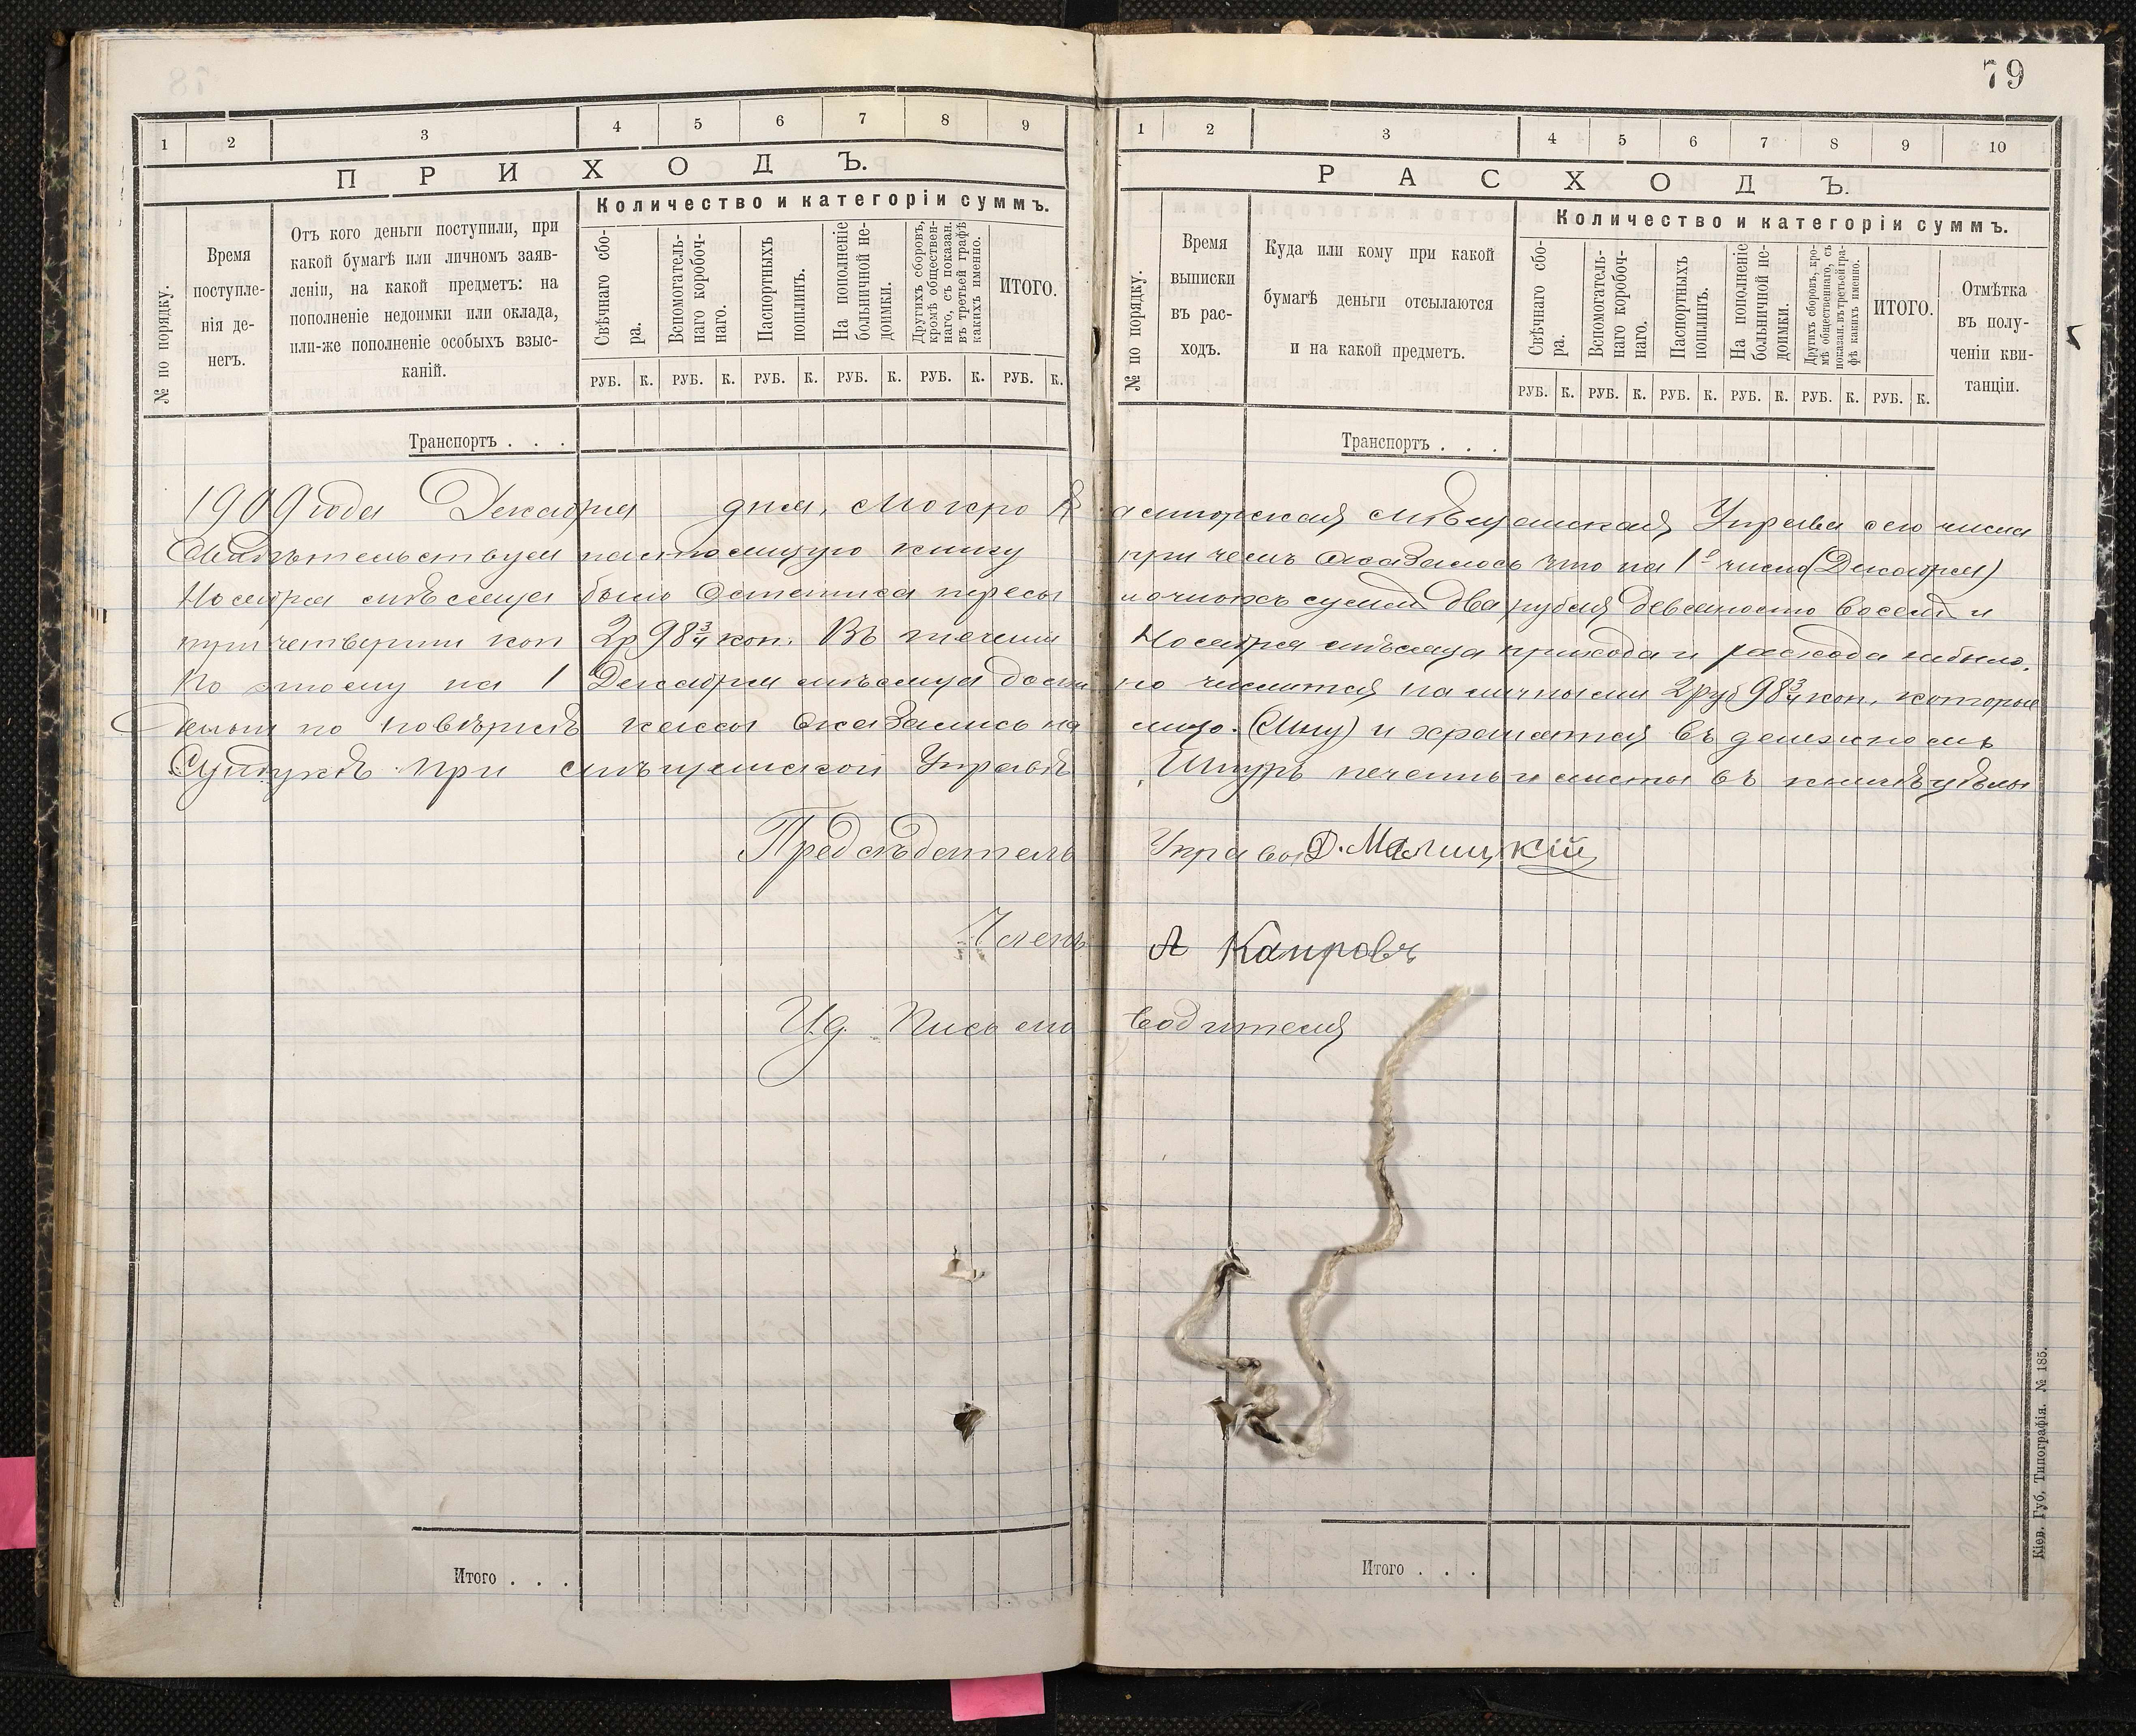 79
1 2 3 4 5 6 7 8 9
ПРИХОДЪ.
Количество и категоріи суммъ.
№ по порядку.
Время
поступле-
нія де-
негъ.
Отъ кого деньги поступили, при
какой бумагѣ или личномъ заяв-
леніи, на какой предметъ: на
пополненіе недоимки или оклада,
или-же пополненіе особыхъ взыс-
каній.
Свѣчнаго сбо-
ра.
Вспомогатель-
наго коробоч-
наго.
Паспортныхъ
пошлинъ.
На пополненіе
больничной не-
доимки.
Другихъ сборовъ,
кромѣ обществен-
наго, съ показан.
въ третьей графѣ
какихъ именно.
ИТОГО.
РУБ. К. РУБ. К. РУБ. К. РУБ. К. РУБ. К. РУБ. К.
Транспортъ . . .
1 2 3 4 5 6 7 8 9 10
РАСХОДЪ.
Количество и категоріи суммъ.
№ по порядку.
Время
выписки
въ рас-
ходъ.
Куда или кому при какой
бумагѣ деньги отсылаются
и на какой предметъ.
Свѣчнаго сбо-
ра.
Вспомогатель-
наго коробоч-
наго.
Паспортныхъ
пошлинъ.
На пополненіе
больничной не-
доимки.
Другихъ сборовъ, кро-
мѣ общественнаго, съ
показан. въ третьей гра-
фѣ какихъ именно.
ИТОГО.
Отмѣтка
въ полу-
ченіи кви-
танціи.
РУБ. К. РУБ. К. РУБ. К. РУБ. К. РУБ. К. РУБ. К.
Транспортъ . . .
1909 года Декабря дня, Мокро Калигорская мѣщанская Управа сего числа
Свидѣтельствуя настоящую книгу при чемъ оказалось что на 1е число (Декабря)
Ноября мѣсяца было Остатка суммы два рубля девяносто восемь и
три четверти коп 2р 98¾ коп. Въ теченіи Ноября мѣсяца прихода и расхода небыло.
По этому на 1 Декабря мѣсяца числится наличными 2 руб 98¾ коп, которые
деньги по повѣркѣ кассы Оказались на лицо. и хранятся въ денежномъ
Сундукѣ при мѣщанской Управѣ. Шнуръ печать и листы въ книгѣ цѣлы
Предсѣдатель Управы Д. Малицкій
Членъ А Каировъ
И.д. Письмоводителя
Итого . . .
Итого . . .
Кіев. Губ. Типографія. № 185.